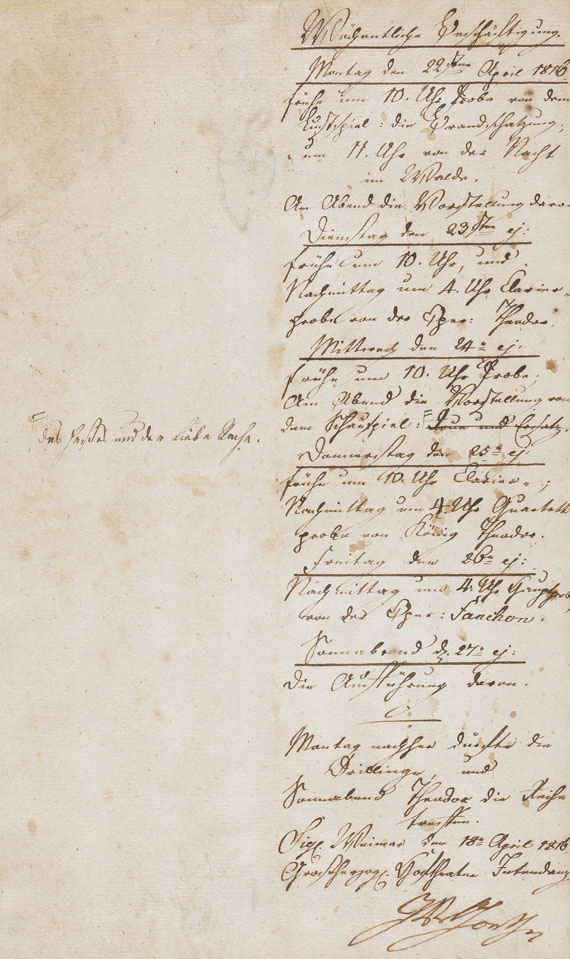 Wöchentliche Beschäftigung.
Montag den 22sten April 1816
frühe um 10. Uhr Probe von dem
Lustspiel: die Brandschatzung;
um 11. Uhr von der Nacht
im Walde.
Am Abend die Vorstellung davon
Dienstag den 23sten ej:
frühe um 10. Uhr, und
Nachmittag um 4. Uhr Clavier-
probe von der Oper: Theodor.
Mittwoch den 24n ej:
frühe um 10. Uhr Probe;
Am Abend die Vorstellung von
dem Schauspiel: und Ersatz.
des Hasses und der Liebe Rache.
Donnerstag den 25n ej:
frühe um 10. Uhr Clavier-;
Nachmittag um 4. Uhr Quartett
probe von König Theodor.
Freitag den 26n ej:
Nachmittag um 4. Uhr Hauptprobe
von der Oper: Fanchon.
Sonnabend d. 27n ej:
Die Aufführung davon.
Montag nachher dürfte die
Drillinge, und
Sonnabend Theodor die Reihe
treffen.
Sigl. Weimar den 18n April 1816
Großherzogl. Hoftheater Intendanz
JWvGoethe